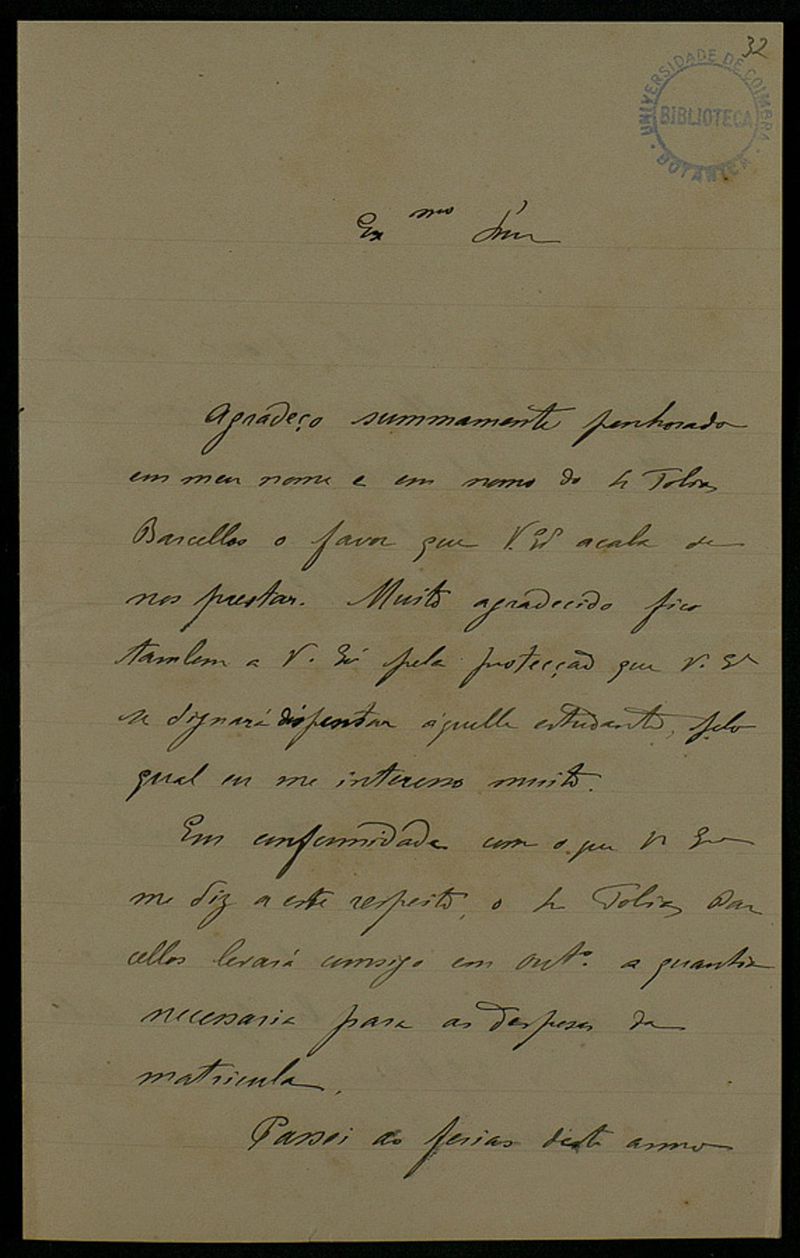 32
UNIVERSIDADE DE COIMBRA
BIBLIOTECA
BOTANICA
Ex mo Snr
Agradeço summamente penhorado
em meu nome e em nome do Sr Tobias
Barcellos o favor que V. Eª acaba de
nos prestar. Muito agradecido fico
tambem a V. Eª pela protecção que V. Eª
se dignará dispensar áquelle estudante, pelo
qual eu me interesso muito.
Em conformidade com o que V Eª
me diz a este respeito, o Sr Tobias Bar
cellos levará comsigo em Outº. a quantia
necessaria para as despesas da
matricula.
Passei as ferias deste anno